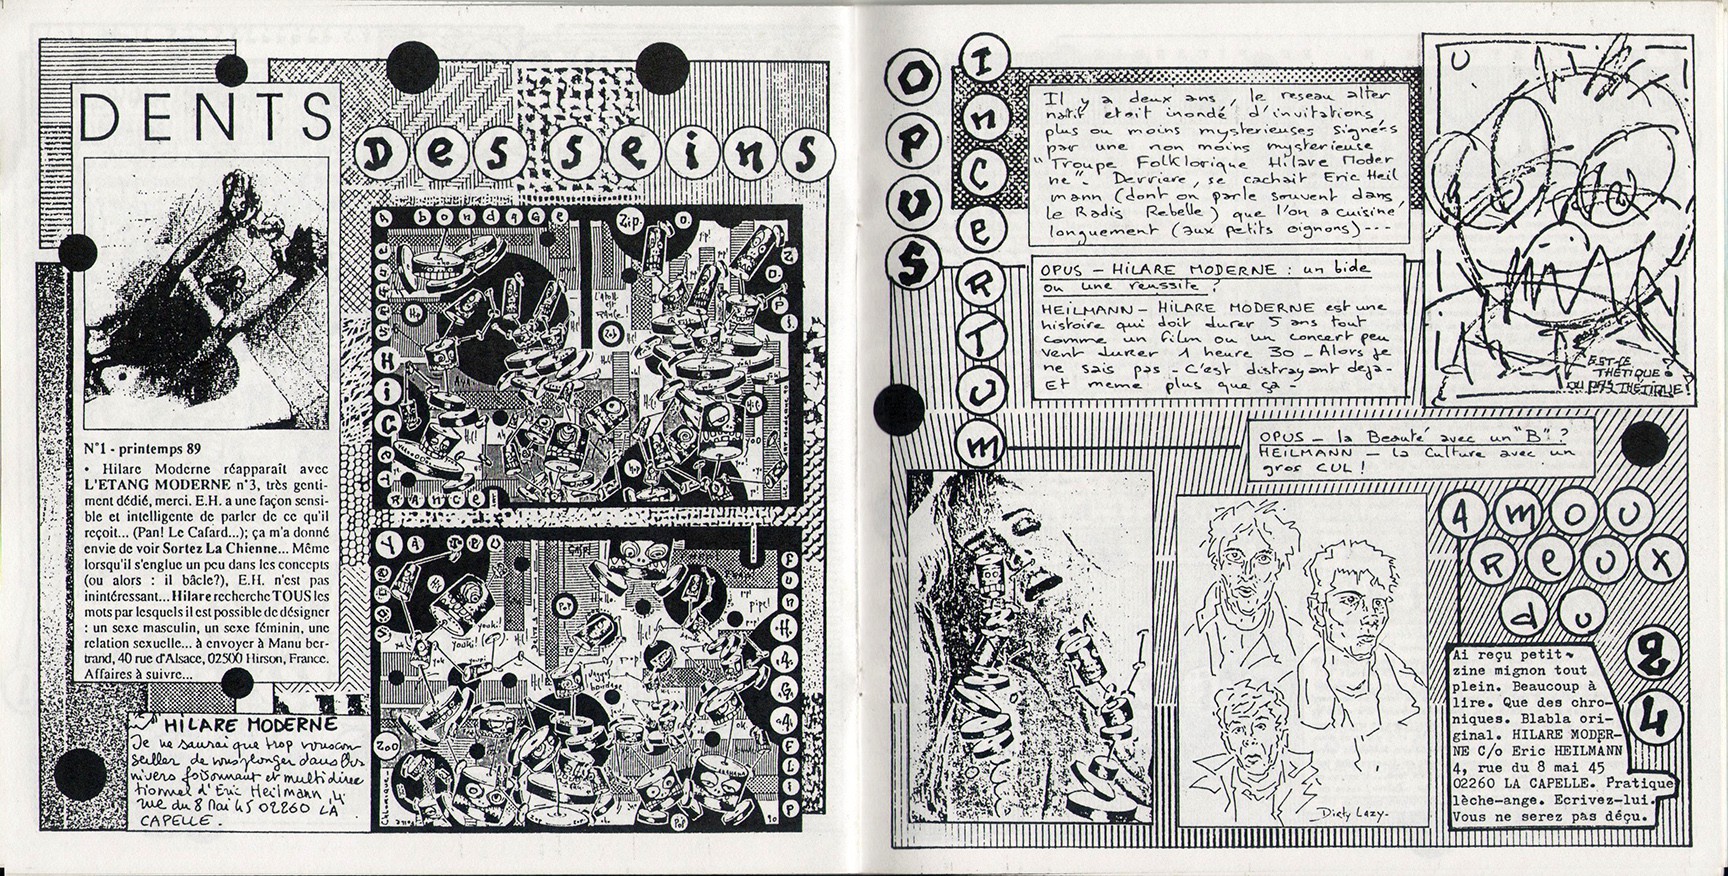 DENTS
Desseins
N°1 - printemps 89
• Hilare Moderne réapparaît avec
L'ETANG MODERNE n°3, très genti-
ment dédié, merci. E.H. a une façon sensi-
ble et intelligente de parler de ce qu'il
reçoit... (Pan! Le Cafard...); ça m'a donné
envie de voir Sortez La Chienne... Même
lorsqu'il s'englue un peu dans les concepts
(ou alors : il bâcle?), E.H. n'est pas
inintéressant... Hilare recherche TOUS les
mots par lesquels il est possible de désigner
: un sexe masculin, un sexe féminin, une
relation sexuelle... à envoyer à Manu ber-
trand, 40 rue d'Alsace, 02500 Hirson, France.
Affaires à suivre...
HILARE MODERNE
Je ne saurai que trop vous con
seiller de vous plonger dans l'u
nivers foisonnant et multidirec
tionnel d'Eric Heilmann 4
rue du 8 Mai 45 02260 LA
CAPELLE.
A bondage
Zip
HiC
RANCE!
YA
ZOO
Pof
OPUS
INCERTUM
Il y a deux ans, le reseau alter
natif etait inondé d'invitations,
plus ou moins mysterieuses signées
par une non moins mysterieuse
"Troupe Folklorique Hilare Moder
ne". Derriere, se cachait Eric Heil
mann (dont on parle souvent dans
le Radis Rebelle) que l'on a cuisiné,
longuement (aux petits oignons)---
OPUS - HILARE MODERNE : un bide
ou une reussite ?
HEILMANN - HILARE MODERNE est une
histoire qui doit durer 5 ans tout
comme un film ou un concert peu
vent durer 1 heure 30 - Alors je
ne sais pas - C'est distrayant deja -
Et meme plus que ça -
EST-CE
THETIQUE
OU PAS THETIQUE
OPUS - la Beauté avec un "B" ?
HEILMANN - la Culture avec un
gros CUL !
AMOU
REUX
du
24
Dirty Lazy-
Ai reçu petit
zine mignon tout
plein. Beaucoup à
lire. Que des chro-
niques. Blabla ori-
ginal. HILARE MODER-
NE C/o Eric HEILMANN
4, rue du 8 mai 45
02260 LA CAPELLE. Pratique
lèche-ange. Ecrivez-lui.
Vous ne serez pas déçu.